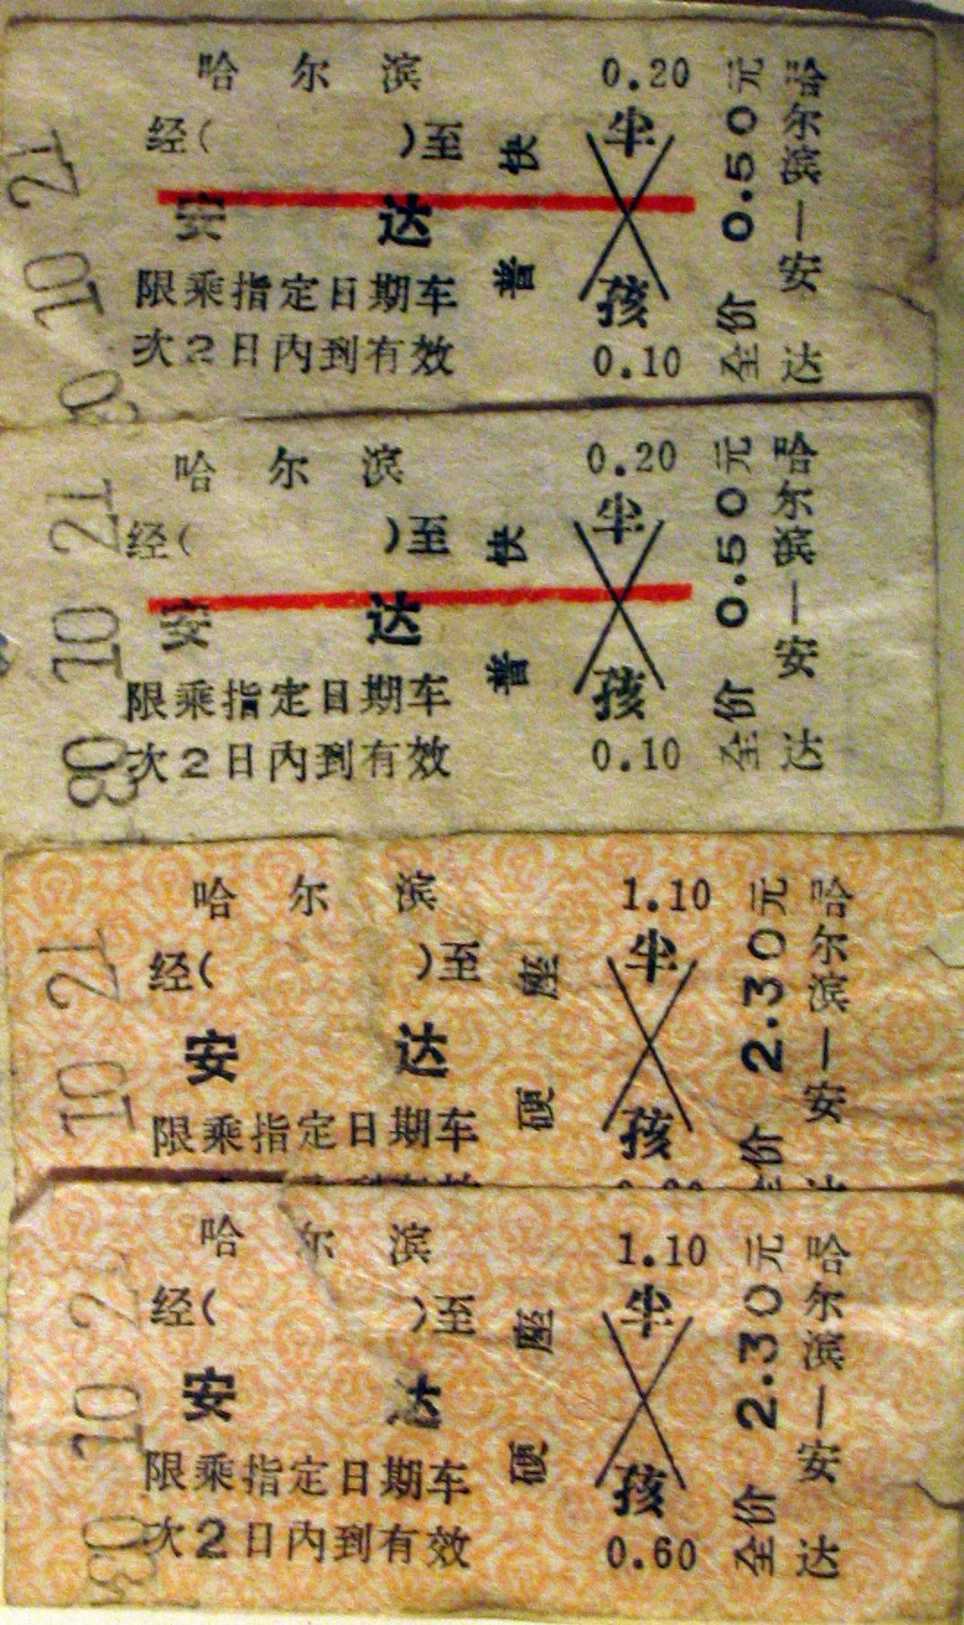 哈尔滨 0.20
经( )至 普快 半
安达
限乘指定日期车 孩
次2日内到有效 0.10
全价 0.50元
哈尔滨—安达
10 21
哈尔滨 0.20
经( )至 普快 半
安达
限乘指定日期车 孩
次2日内到有效 0.10
全价 0.50元
哈尔滨—安达
10 21
哈尔滨 1.10
经( )至 硬座 半
安达
限乘指定日期车 孩
全价 2.30元
哈尔滨—安
10 21
哈尔滨 1.10
经( )至 硬座 半
安达
限乘指定日期车 孩
次2日内到有效 0.60
全价 2.30元
哈尔滨—安达
10